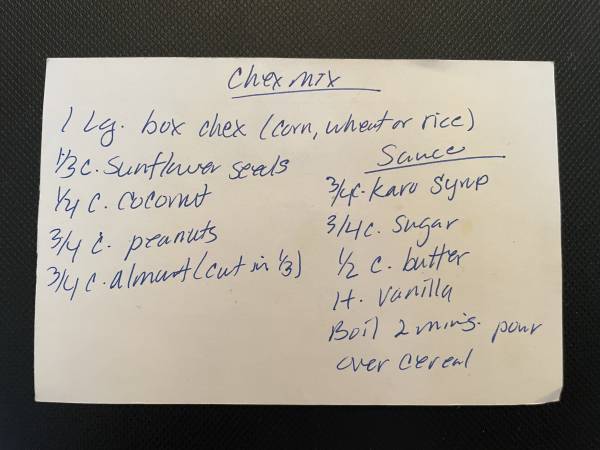 Chex mix
1 Lg. box chex (corn, wheat or rice)
1/3 c. sunflower seeds
1/4 c. coconut
3/4 c. peanuts
3/4 c. almond (cut in 1/3)
Sauce
3/4c. Karo Syrup
3/4c. sugar
1/2 c. butter
1t. vanilla
Boil 2 mins. pour
over cereal